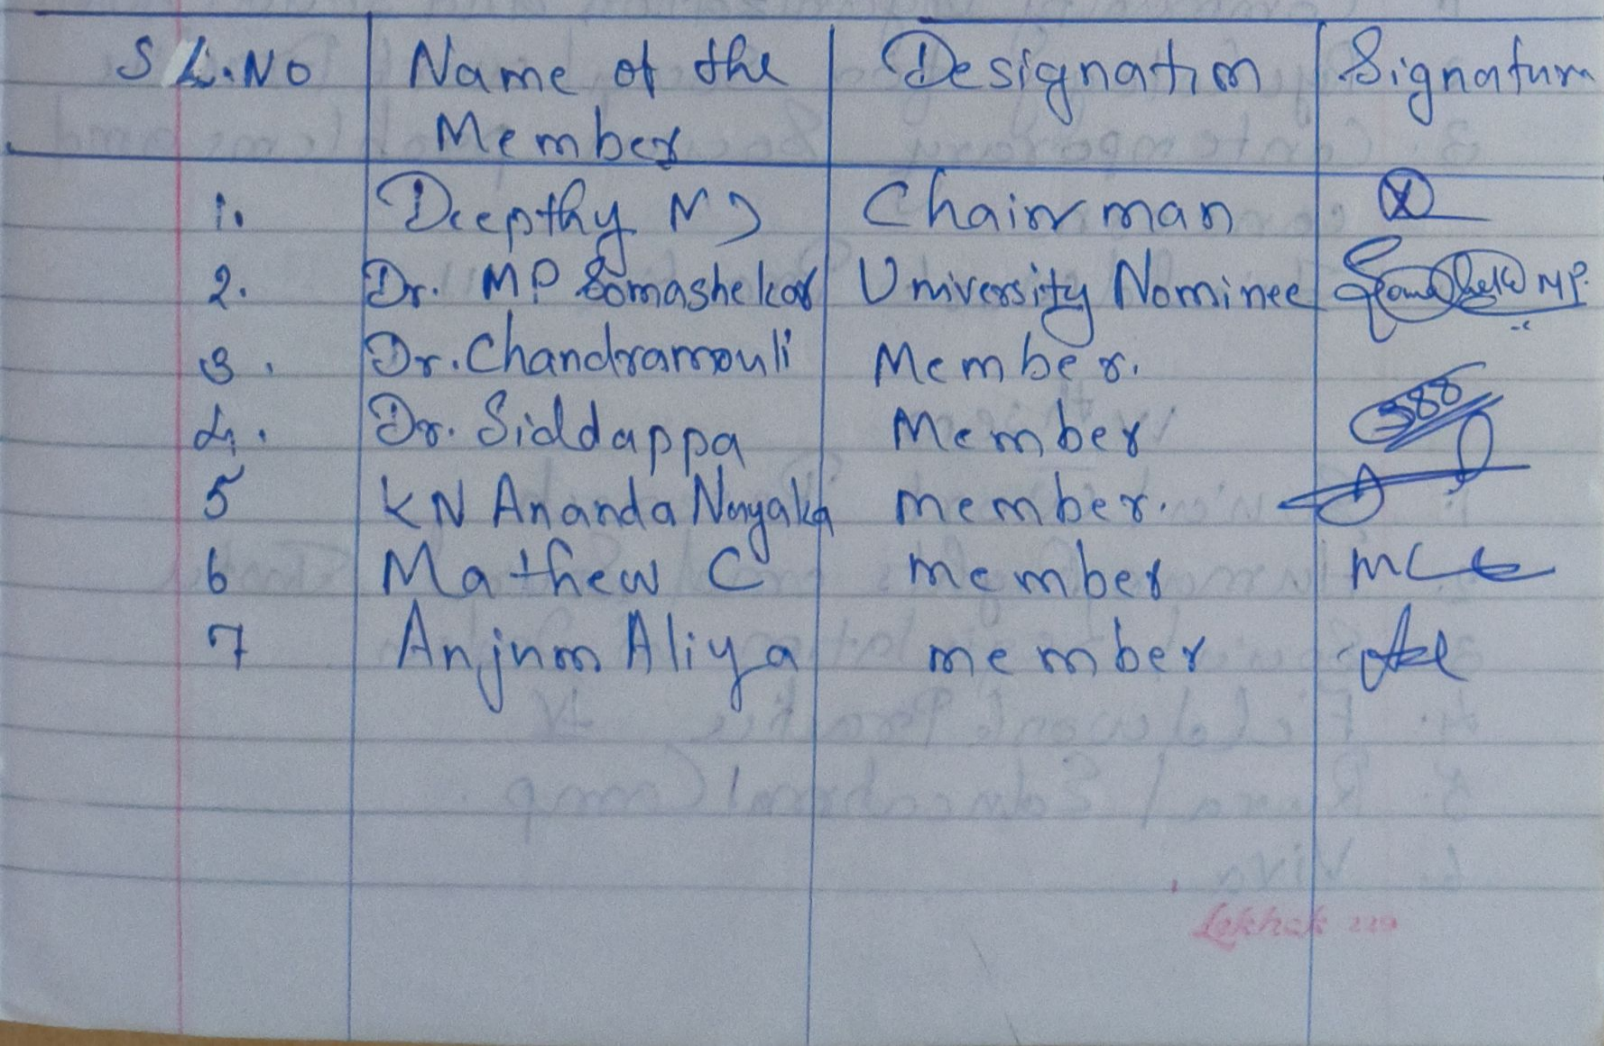 SL.No Name of the Member Designation Signature
1. Deepthy M J Chairman
2. Dr. MP Somashekar University Nominee MP.
3. Dr. Chandramouli Member.
4. Dr. Siddappa Member
5 KN Ananda Nayaka member.
6 Mathew C member
7 Anjum Aliya member
Lekhak 229